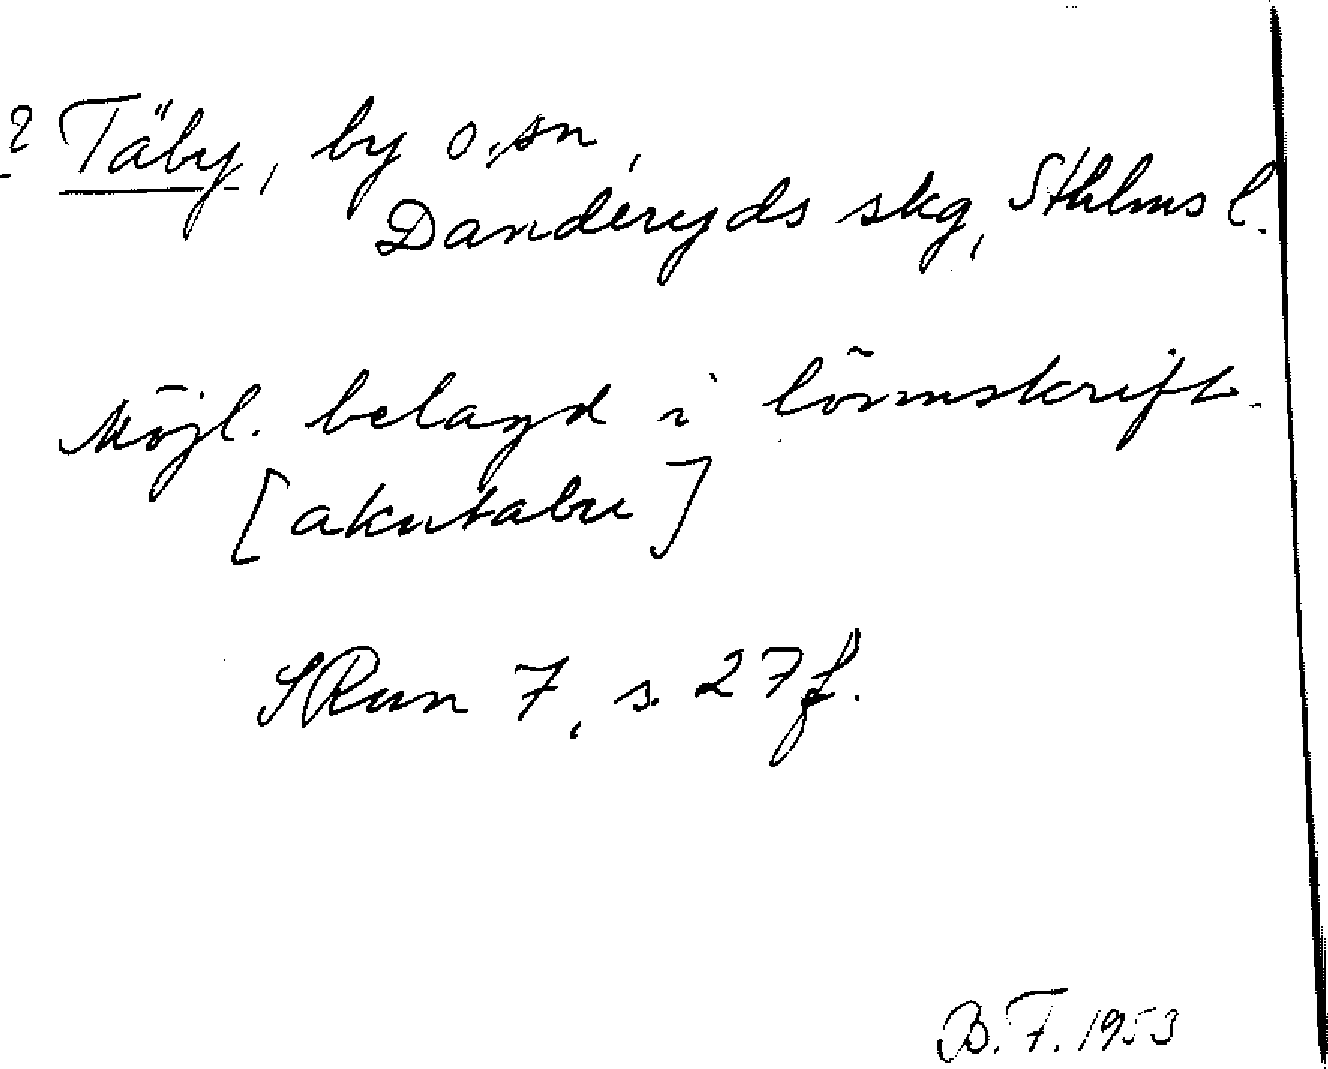 ? Täby, by o. sn,
Danderyds skg, Sthlms l.
Möjl. belagd i lönnskrift.
[akutabu]
SRun 7, s. 27 f.
B. F. 1953